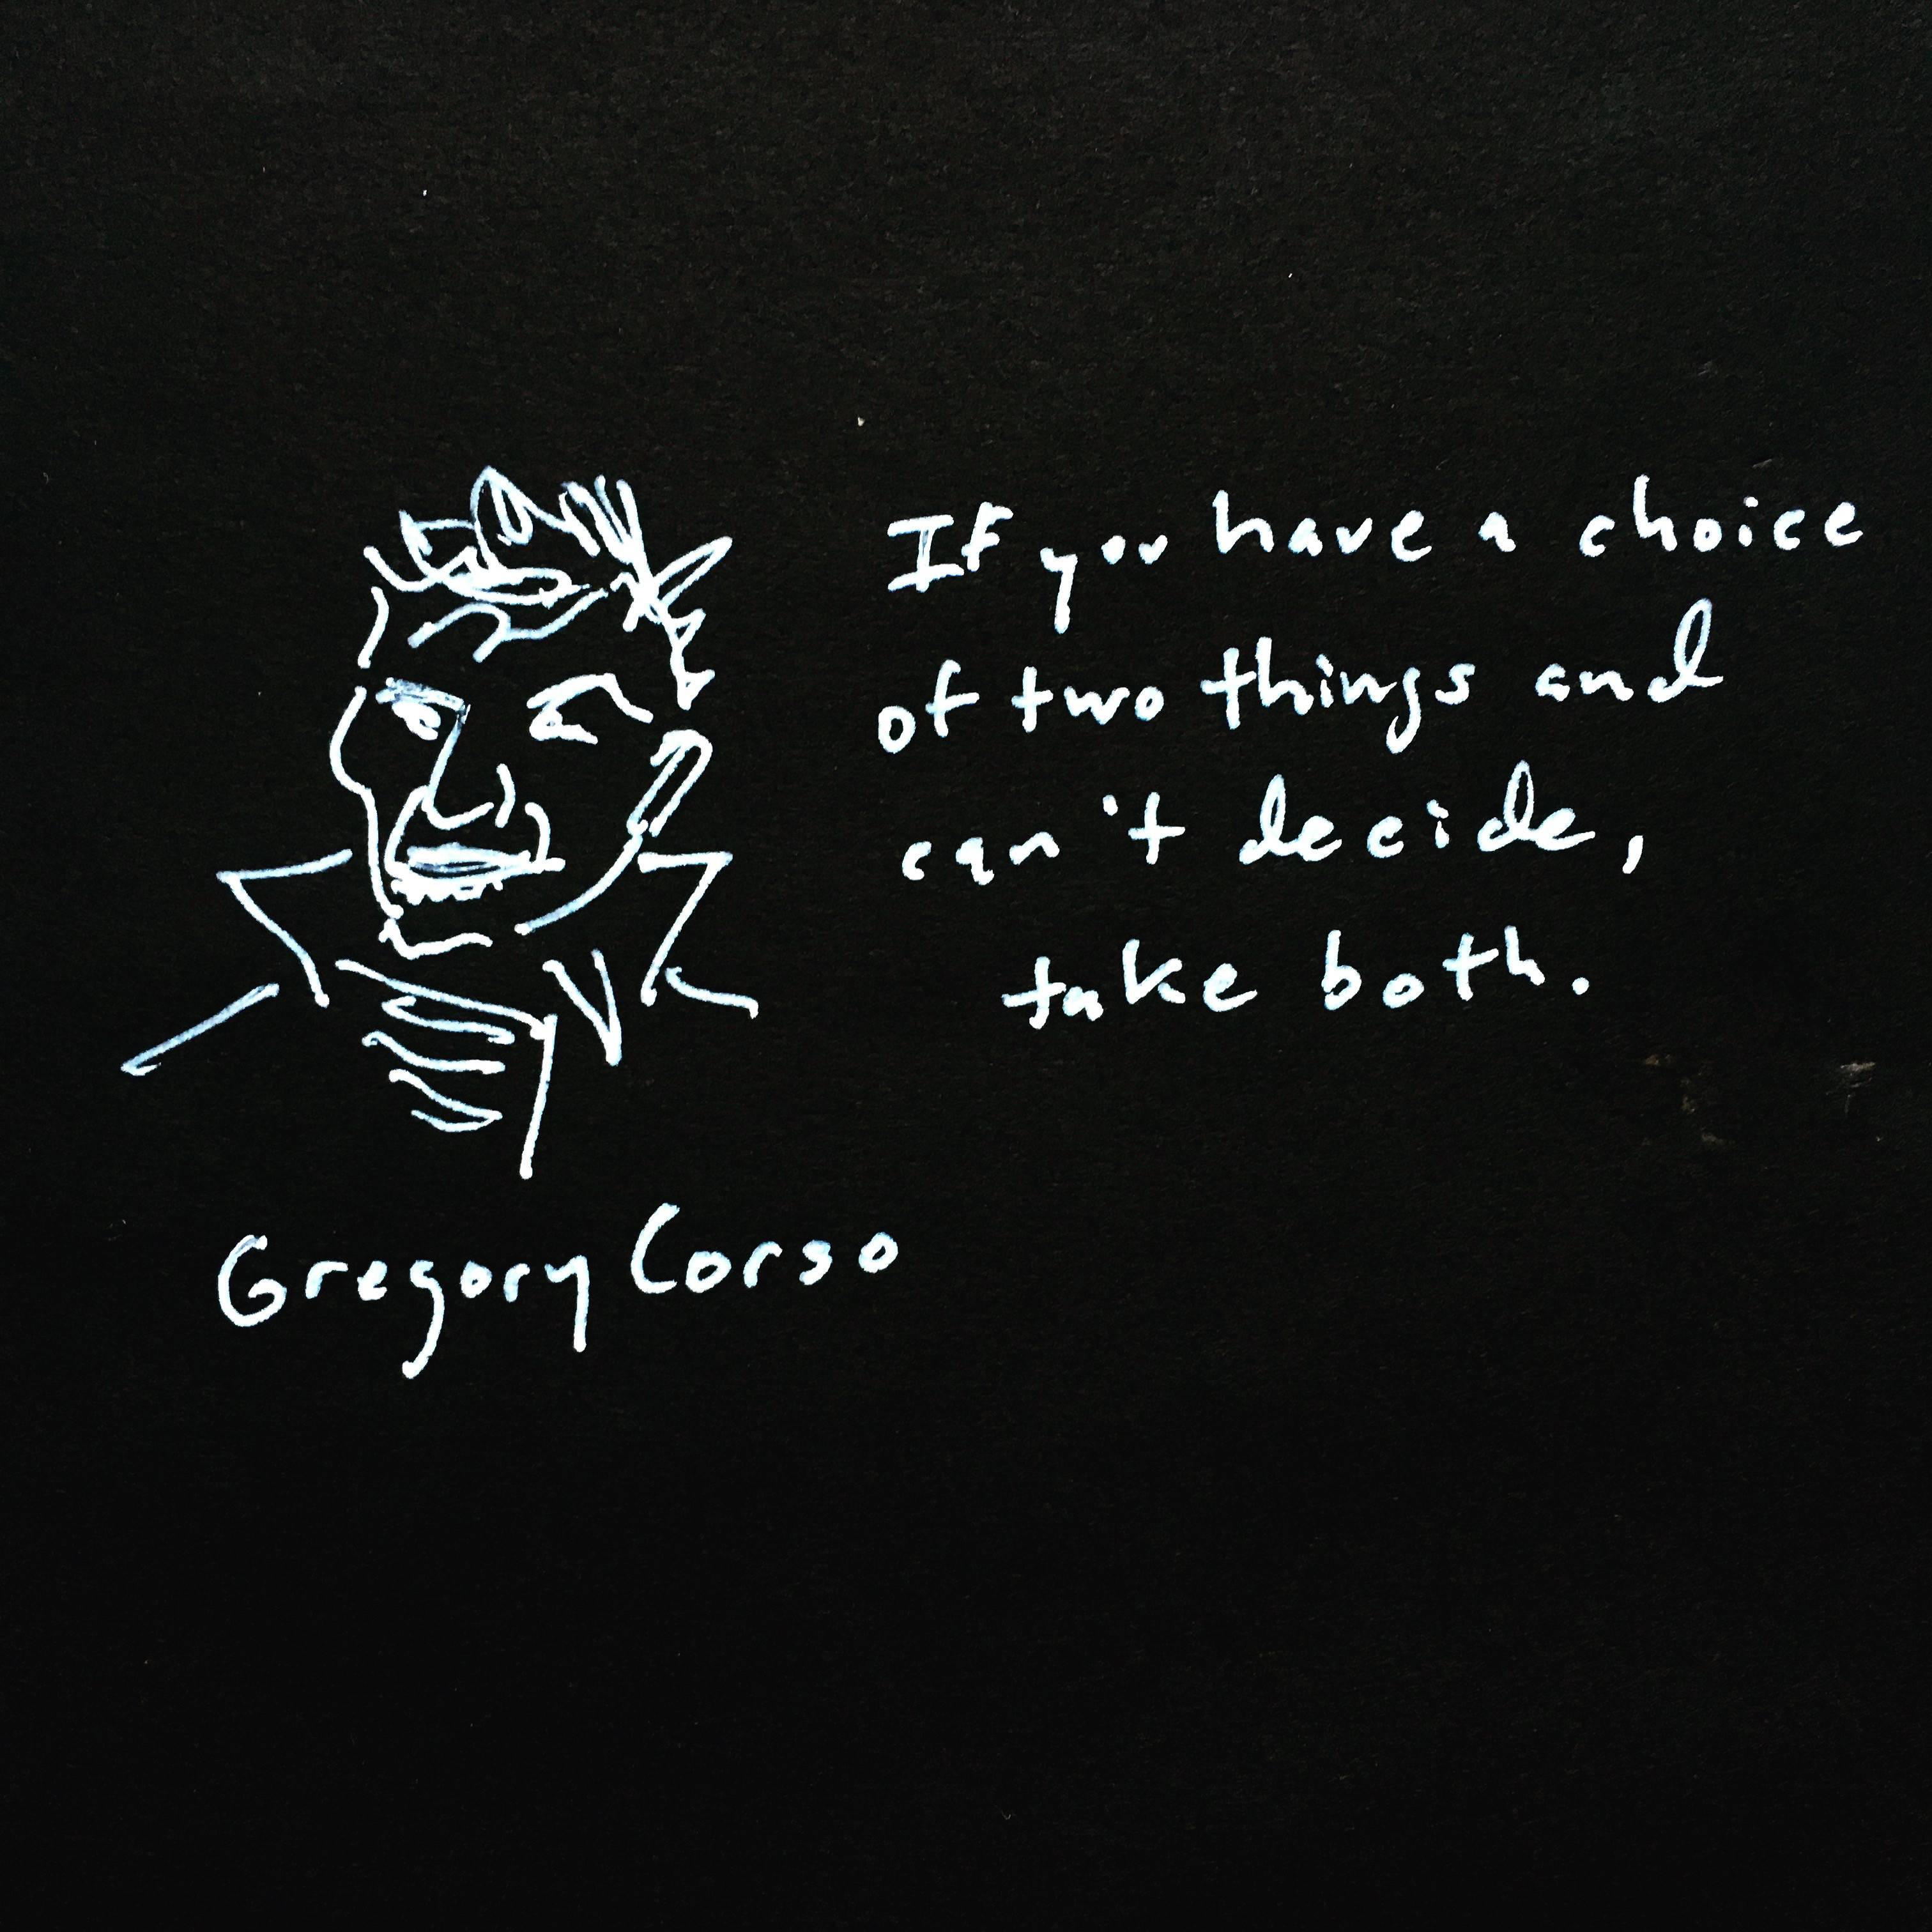 If you have a choice
of two things and
can't decide,
take both.
Gregory Corso